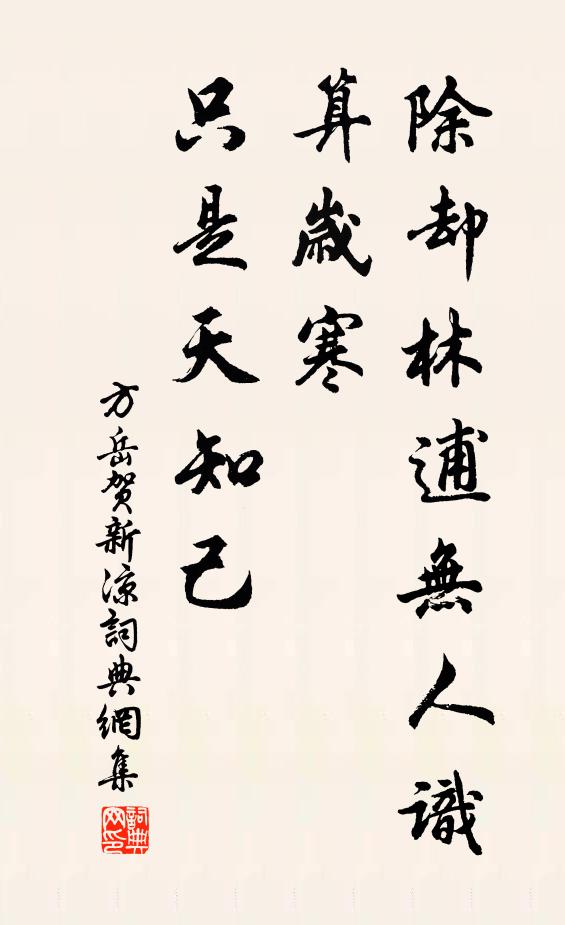 除却林逋無人識
算歲寒
只是天知己
方岳賀新涼詞典網集
詞典
网印